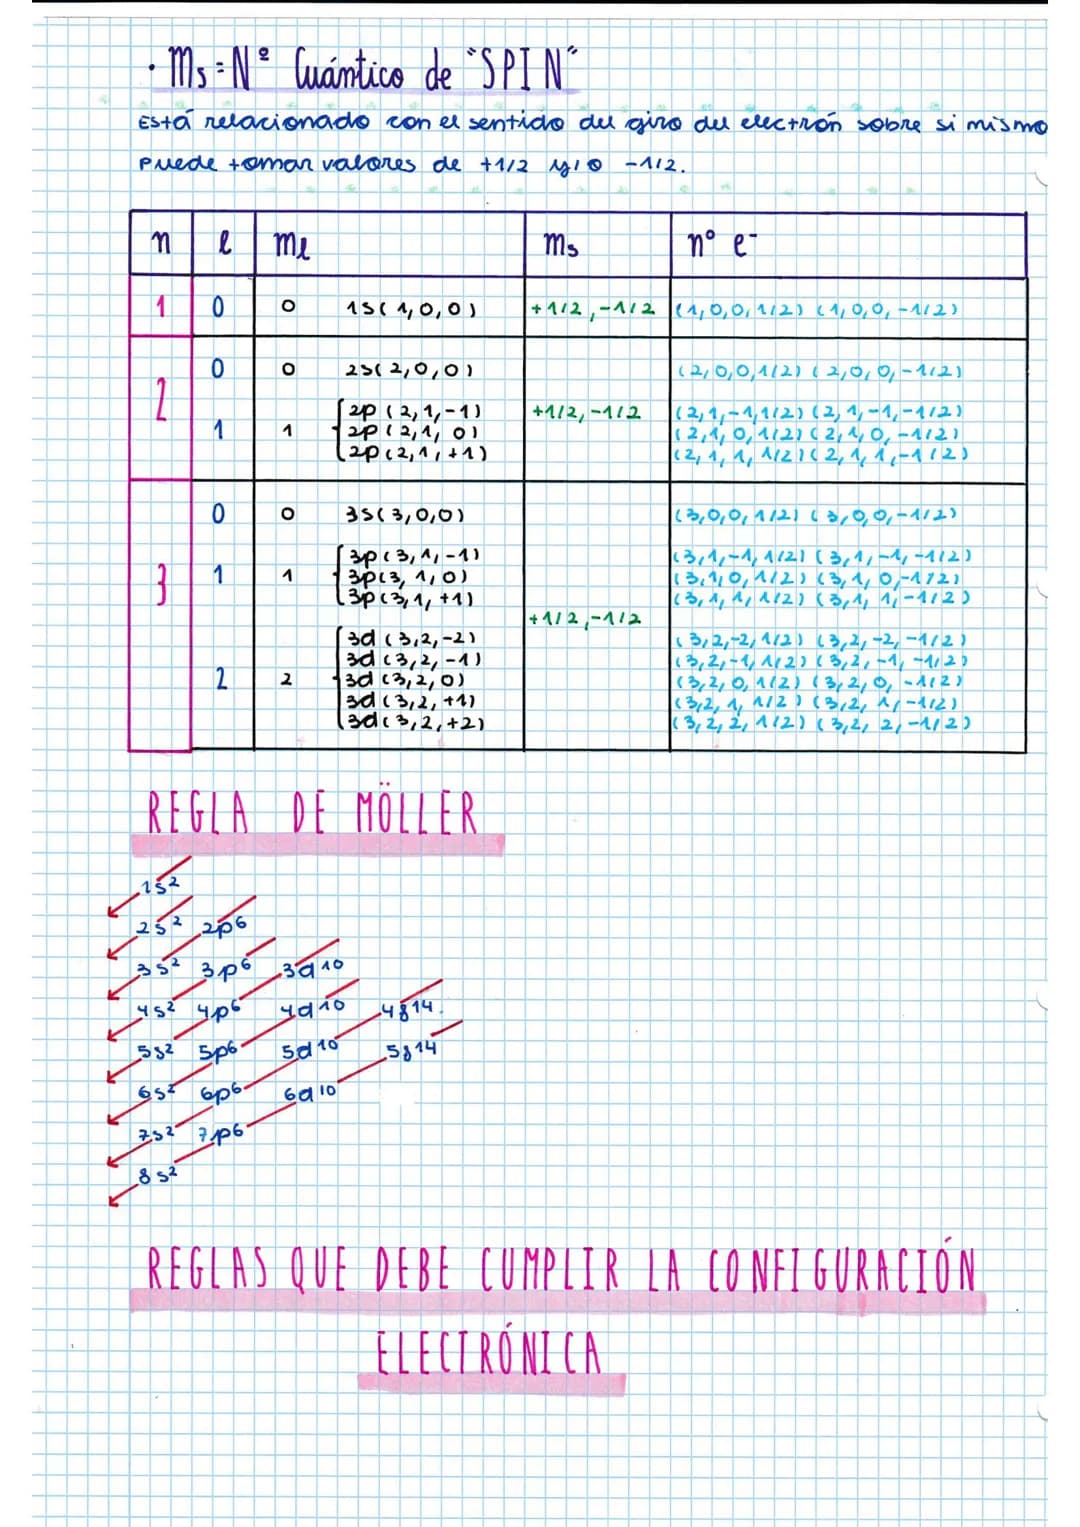 · ms = Nº Cuántico de "SPIN"
Está relacionado con el sentido del giro del electrón sobre si mismo
puede tomar valores de +1/2 y/o -1/2.
n l ml ms nº e-
1 0 0 1s(1,0,0) +1/2,-1/2 (1,0,0,1/2) (1,0,0,-1/2)
0 0 2s(2,0,0) (2,0,0,1/2) (2,0,0,-1/2)
2 2p (2,1,-1) +1/2,-1/2 (2,1,-1,1/2) (2,1,-1,-1/2)
1 1 2p (2,1,0) (2,1,0,1/2) (2,1,0,-1/2)
2p (2,1,+1) (2,1,1,1/2) (2,1,1,-1/2)
0 0 3s(3,0,0) (3,0,0,1/2) (3,0,0,-1/2)
3p(3,1,-1) (3,1,-1,1/2) (3,1,-1,-1/2)
3 1 1 3p(3,1,0) (3,1,0,1/2) (3,1,0,-1/2)
3p(3,1,+1) (3,1,1,1/2) (3,1,1,-1/2)
+1/2,-1/2
3d (3,2,-2) (3,2,-2,1/2) (3,2,-2,-1/2)
3d (3,2,-1) (3,2,-1,1/2) (3,2,-1,-1/2)
2 2 3d (3,2,0) (3,2,0,1/2) (3,2,0,-1/2)
3d (3,2,+1) (3,2,1,1/2) (3,2,1,-1/2)
3d (3,2,+2) (3,2,2,1/2) (3,2,2,-1/2)
REGLA DE MÖLLER
1s2
2s2 2p6
3s2 3p6 3d10
4s2 4p6 4d10 4f14
5s2 5p6 5d10 5f14
6s2 6p6 6d10
7s2 7p6
8s2
REGLAS QUE DEBE CUMPLIR LA CONFIGURACIÓN
ELECTRÓNICA